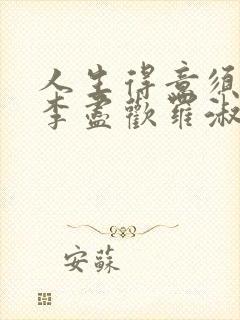 人生得意须
李盡歡羅淑
安蘇